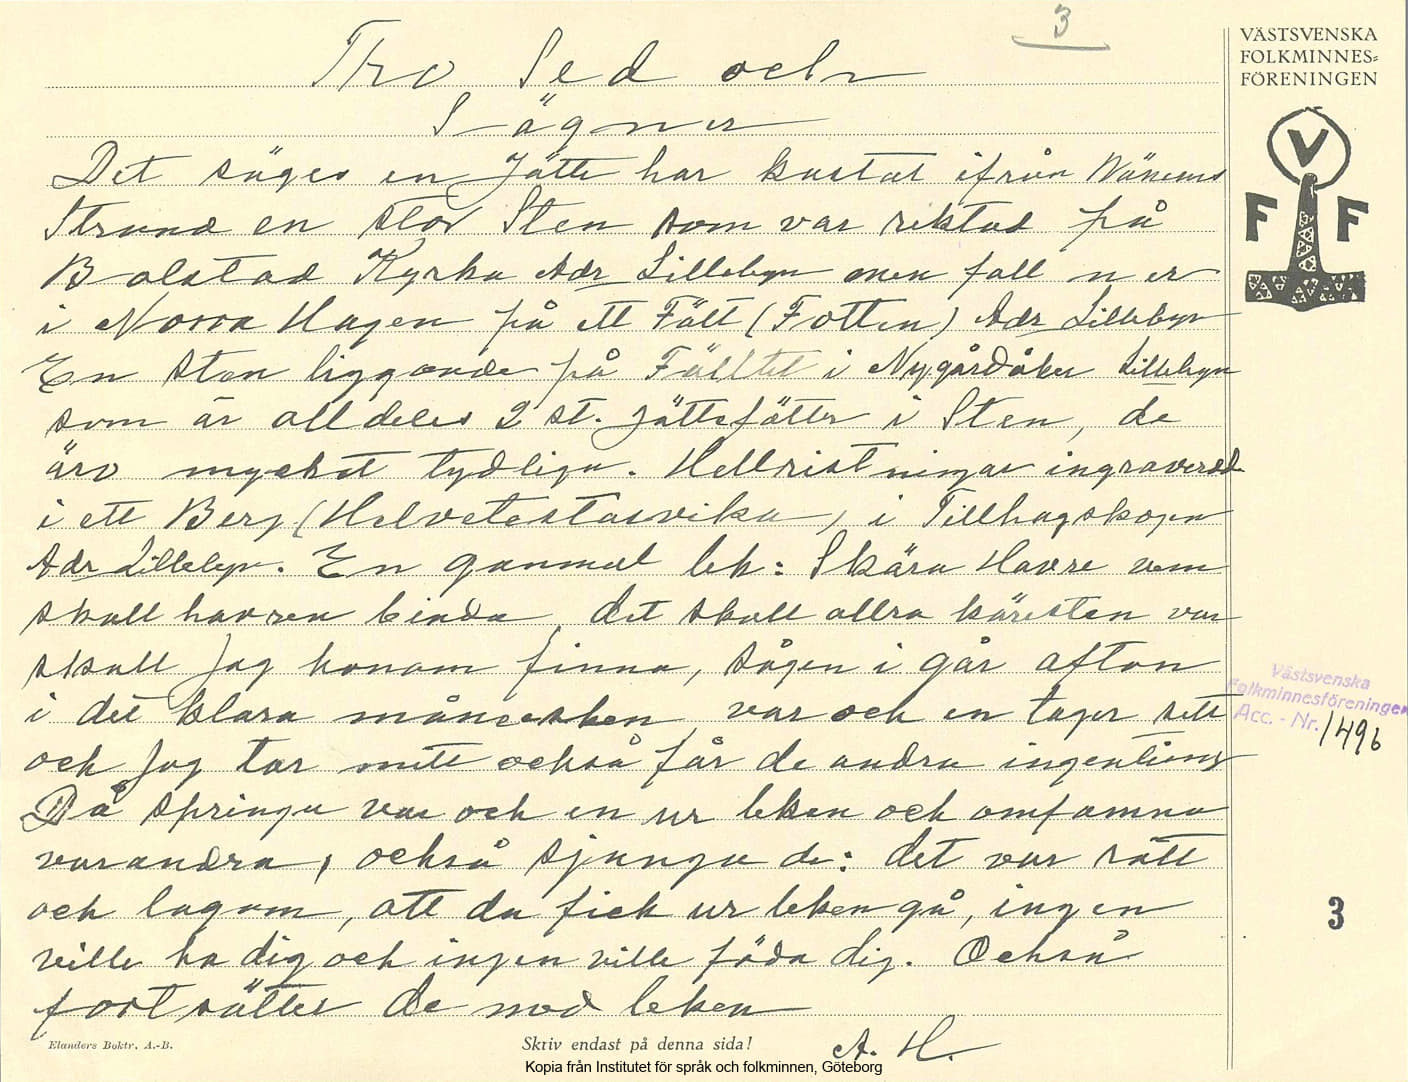 3
VÄSTSVENSKA
FOLKMINNES=
FÖRENINGEN
V
F F
Tro Sed och
Sägner
Det säges en Jätte har kastat ifrån Wänerns
Strand en stor Sten som var riktad på
Bolstad Kyrka Adr Lillebyn men föll ner
i Norra Hagen på ett Fält (Fotten) Adr Lillebyn
En sten liggande på Fälltet i Nygårdåker Lillebyn
som är alldeles 2 st. Jättefötter i Sten, de
äro mycket tydliga. Hellristningar ingraverad
i ett Berg (Helvetestasvika) i Tillhagskogen
Adr Lillebyn. En gammal lek: Skära Havre vem
skall havren binda, det skall allra käresten var
skall Jag honom finna, sågen i går afton
i det klara månesken var och en tager sitt
och Jag tar mitt också får de andra ingenting
Då springa var och en ur leken och omfamna
varandra, också sjunga de: det var rätt
och lagom, att du fick ur leken gå, ingen
ville ha dig och ingen ville föda dig. Också
fortsätter de med leken
A. H.
Västsvenska
Folkminnesföreningen
Acc. - Nr. 1496
3
Elanders Boktr. A.-B.
Skriv endast på denna sida!
Kopia från Institutet för språk och folkminnen, Göteborg